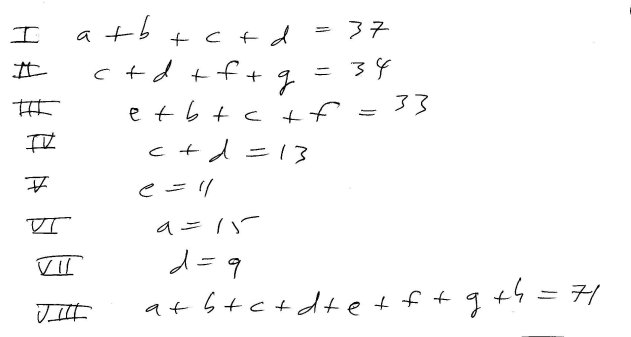 I a + b + c + d = 37
II c + d + f + g = 34
III e + b + c + f = 33
IV c + d = 13
V e = 11
VI a = 15
VII d = 9
VIII a + b + c + d + e + f + g + h = 71